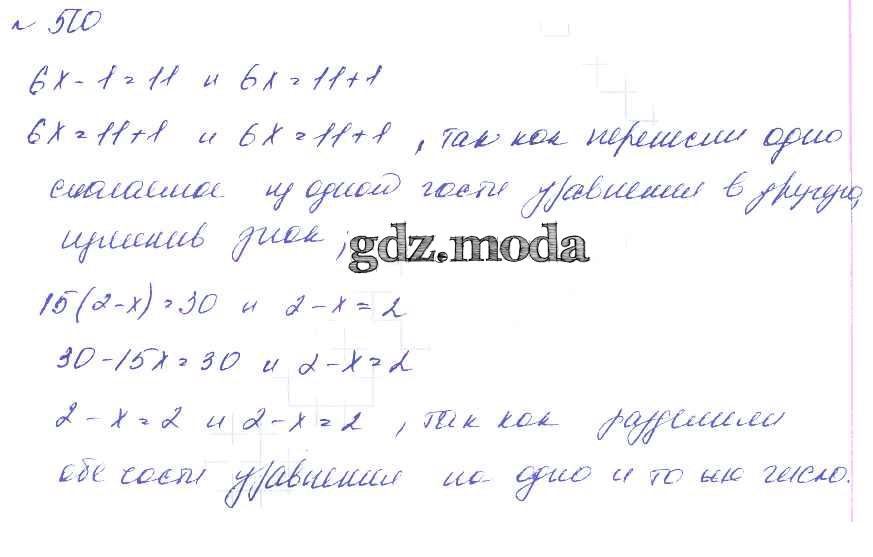 № 510
6x - 1 = 11 и 6x = 11+1
6x = 11+1 и 6x = 11+1, так как перенесли одно
слагаемое из одной части уравнения в другую,
изменив знак;
gdz.moda
15(2-x) = 30 и 2-x = 2
30-15x = 30 и 2-x = 2
2-x = 2 и 2-x = 2, так как разделили
обе части уравнения на одно и то же число.